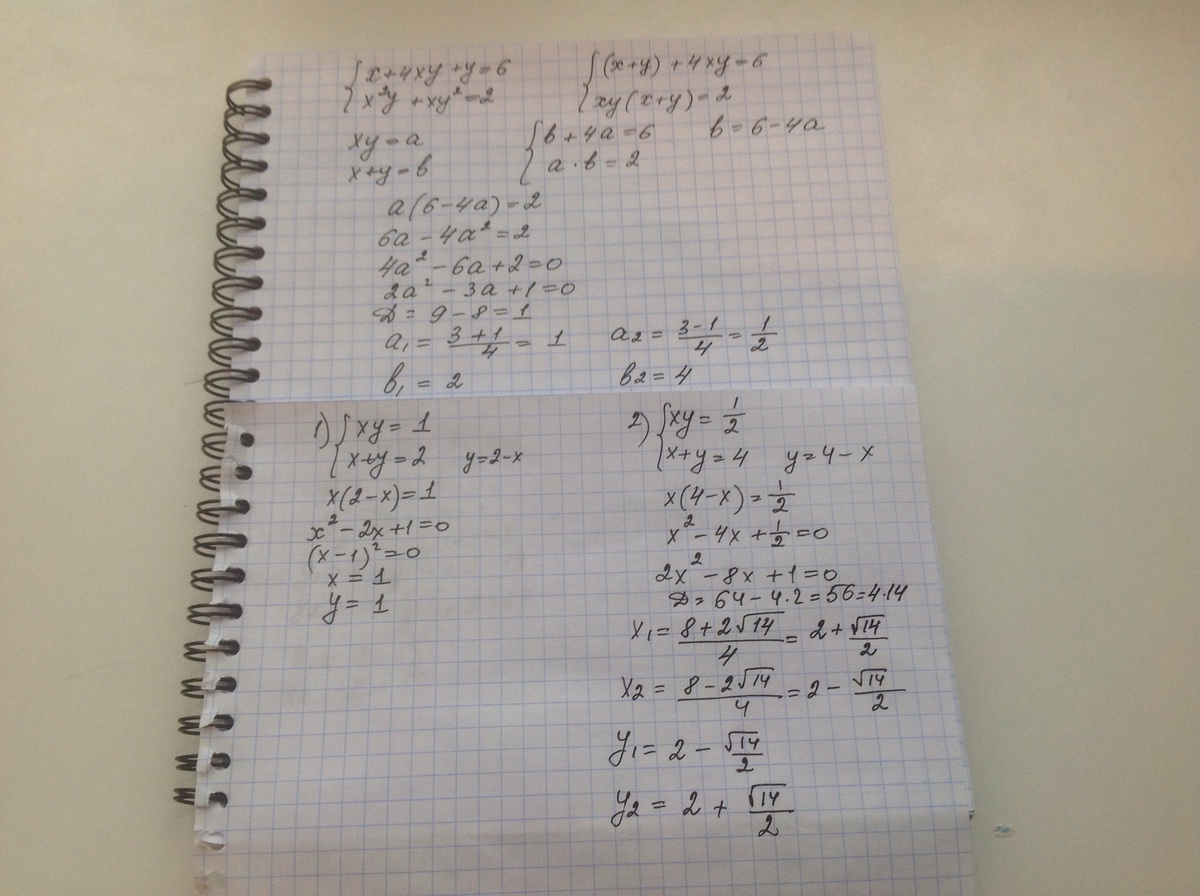 { x+4xy+y=6    { (x+y)+4xy=6
{ x²y+xy²=2    { xy(x+y)=2
xy=a    { b+4a=6    b=6-4a
x+y=b    { a·b=2
a(6-4a)=2
6a-4a²=2
4a²-6a+2=0
2a²-3a+1=0
D=9-8=1
a₁=(3+1)/4=1    a₂=(3-1)/4=1/2
b₁=2    b₂=4
1) { xy=1
{ x+y=2    y=2-x
x(2-x)=1
x²-2x+1=0
(x-1)²=0
x=1
y=1
2) { xy=1/2
{ x+y=4    y=4-x
x(4-x)=1/2
x²-4x+1/2=0
2x²-8x+1=0
D=64-4·2=56=4·14
x₁=(8+2√14)/4=2+√14/2
x₂=(8-2√14)/4=2-√14/2
y₁=2-√14/2
y₂=2+√14/2